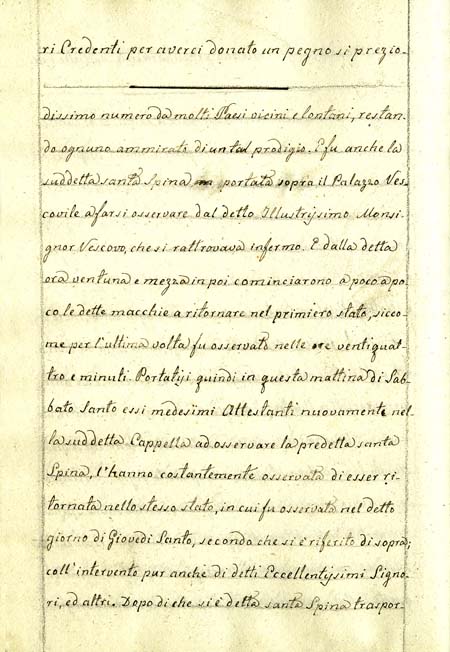 ri Credenti per averci donato un pegno si prezio-
dissimo numero da molti Paesi vicini e lontani, restan-
do ognuno ammirato di un tal prodigio. E fu anche la
suddetta santa Spina portata sopra il Palazzo Ves-
covile a farsi osservare dal detto Illustrissimo Monsi-
gnor Vescovo, che si rattrovava infermo. E dalla detta
ora ventuna e mezza in poi cominciarono a poco a po-
co le dette macchie a ritornare nel primiero stato, sicco-
me per l'ultima volta fu osservato nelle ore ventiquat-
tro e minuti. Portatisi quindi in questa mattina di Sab-
bato Santo essi medesimi Attestanti nuovamente nel-
la suddetta Cappella ad osservare la predetta santa
Spina, l'hanno costantemente osservata di esser ri-
tornata nello stesso stato, in cui fu osservata nel detto
giorno di Giovedì Santo, secondo che si è riferito di sopra;
coll'intervento pur anche di detti Eccellentissimi Signo-
ri, ed altri. Dopo di che si è detta santa Spina traspor-